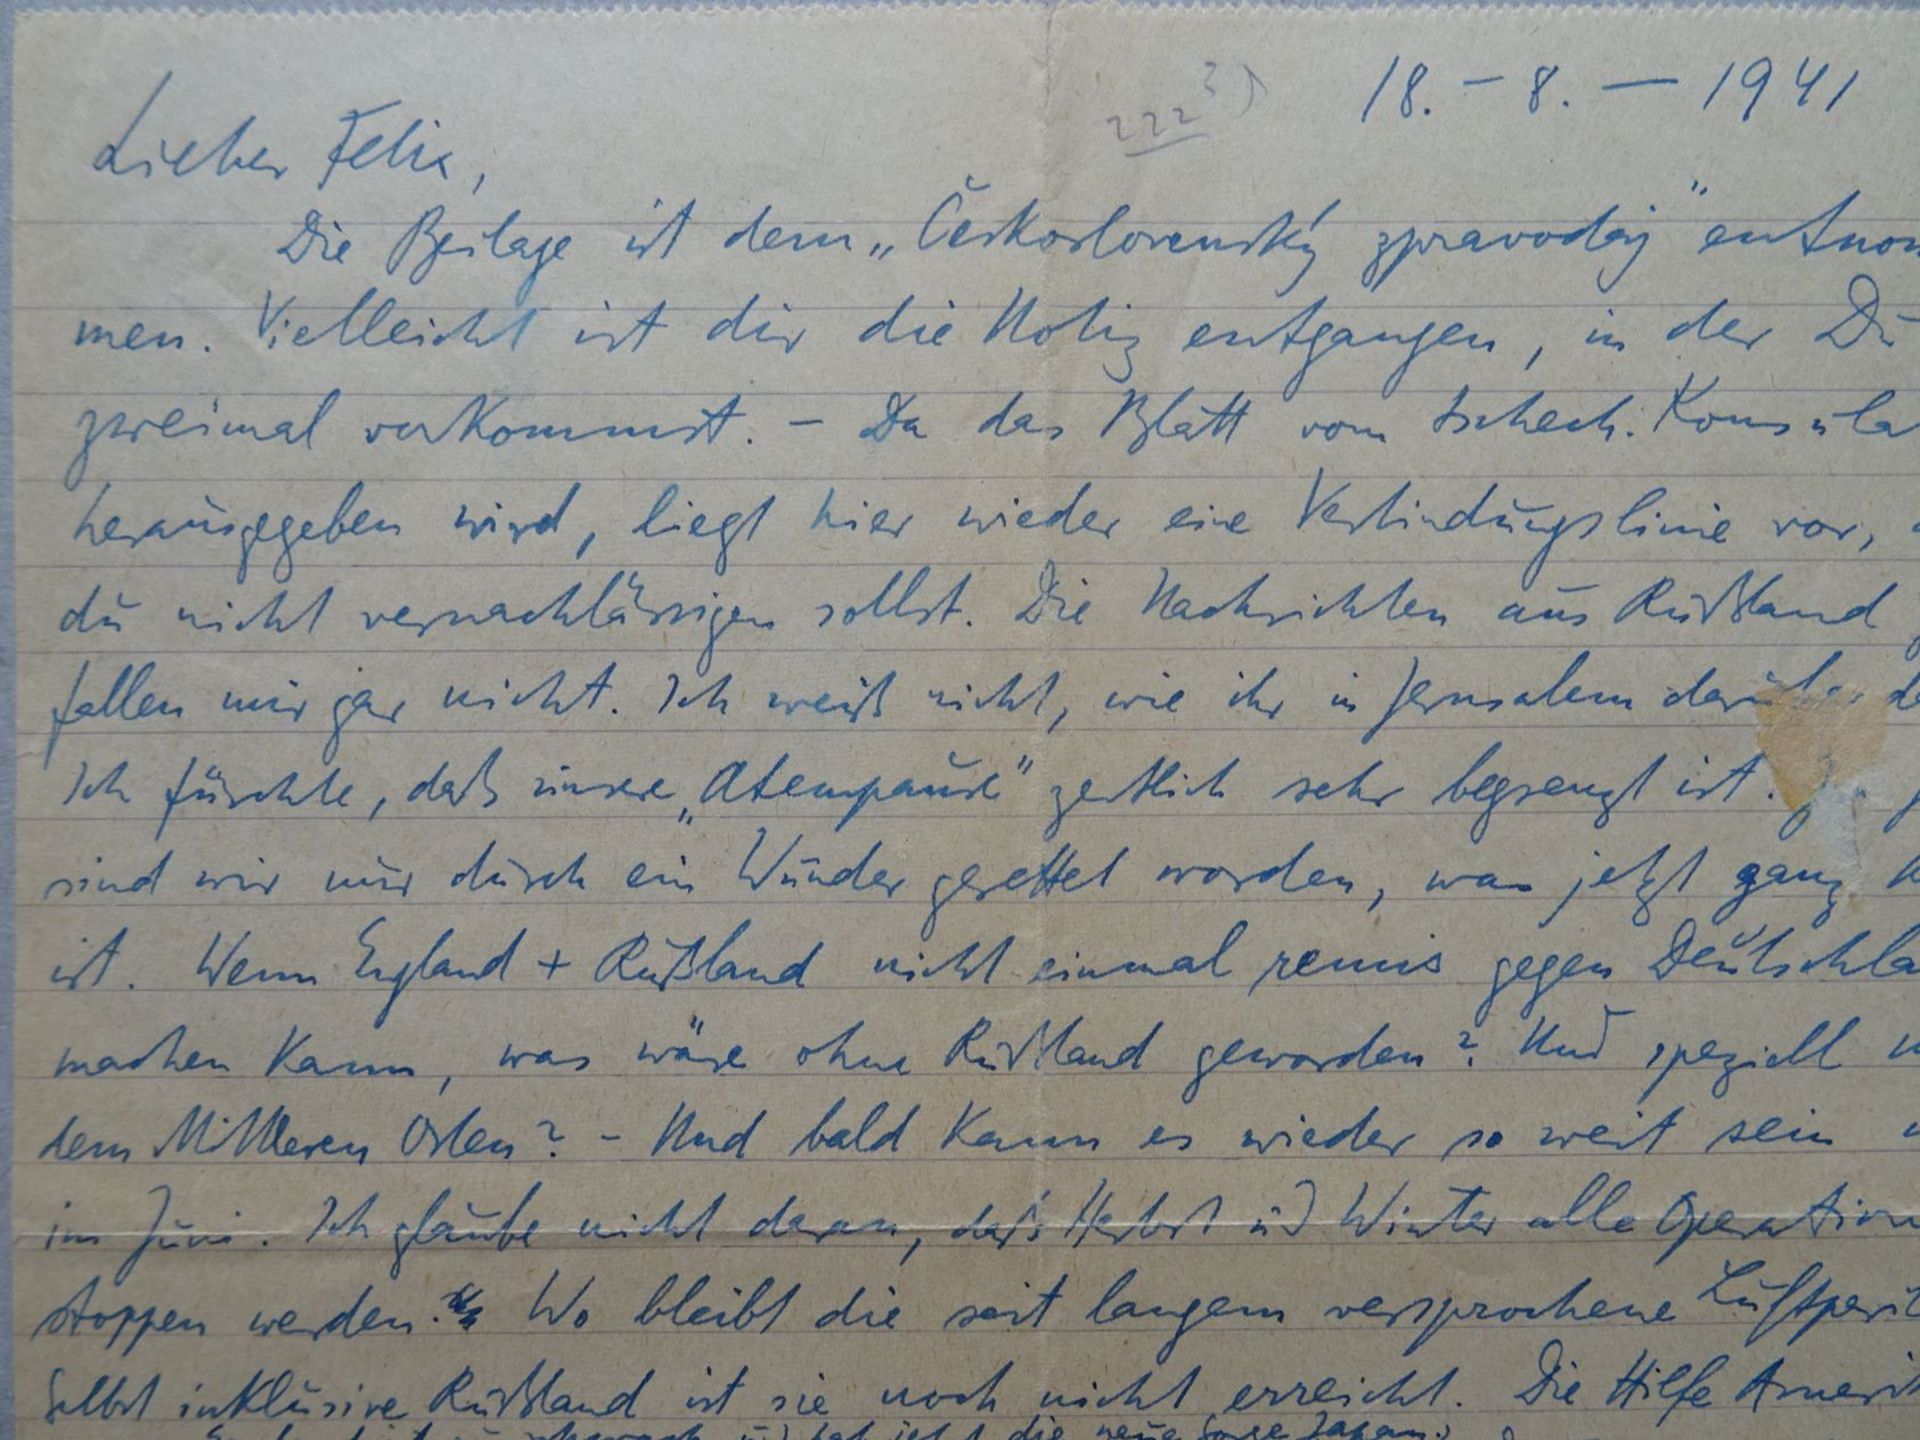 18. – 8. – 1941
222 3)
Lieber Felix,
Die Beilage ist dem „Československý zpravodaj" entnom
men. Vielleicht ist dir die Notiz entgangen, in der Du
zweimal vorkommst. – Da das Blatt vom tschech. Konsula
herausgegeben wird, liegt hier wieder eine Verbindungslinie vor,
du nicht vernachlässigen sollst. Die Nachrichten aus Rußland
fallen mir gar nicht. Ich weiß nicht, wie ihr in Jerusalem darüber de
Ich fürchte, daß unsere „Atempause" zeitlich sehr begrenzt ist.
sind wir nur durch ein Wunder gerettet worden, was jetzt ganz
ist. Wenn England + Rußland nicht einmal remis gegen Deutschla
machen kann, was wäre ohne Rußland geworden? Und speziell
dem Mittleren Osten? – Und bald kann es wieder so weit sein
im Juni. Ich glaube nicht daran, daß Herbst und Winter alle Operation
stoppen werden. Wo bleibt die seit langem versprochene
Selbst inklusive Rußland ist sie noch nicht erreicht. Die Hilfe Amerik
schwach und hat jetzt die neue Sorge Japan.